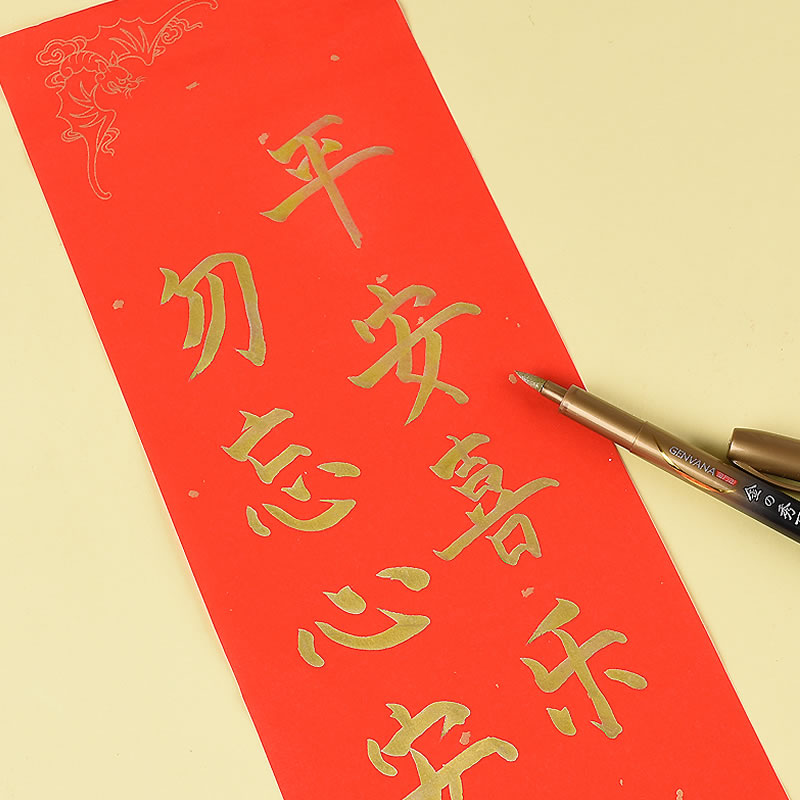 平安喜乐
勿忘心安
GENVANA
金の秀